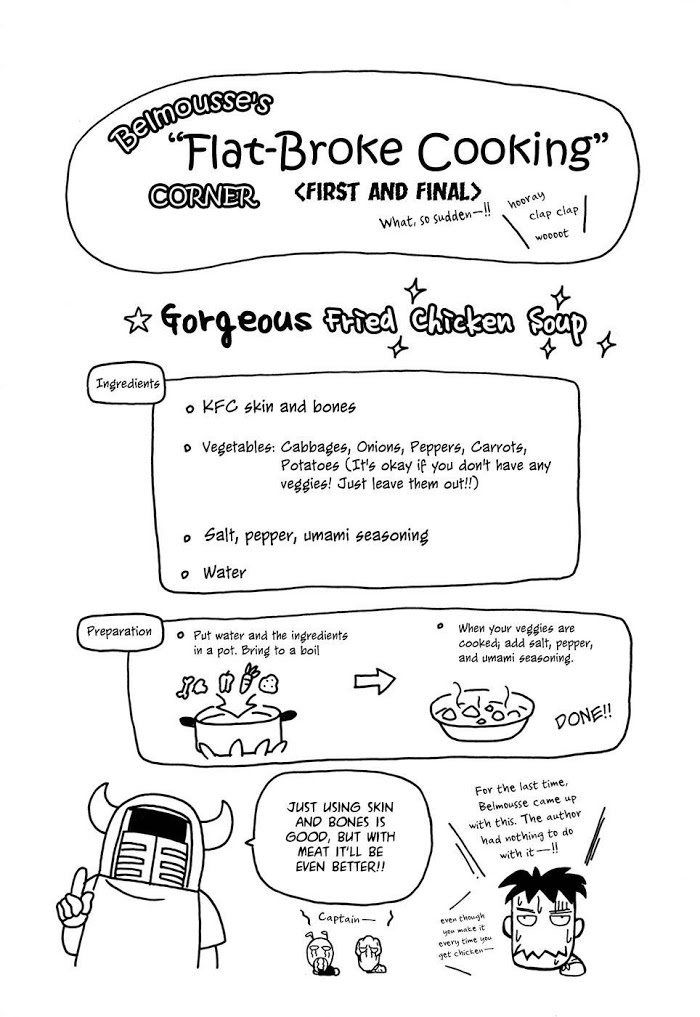 Belmousse's
"Flat-Broke Cooking"
CORNER <FIRST AND FINAL>
What, so sudden—!!
hooray
clap clap
woooot
☆ Gorgeous Fried Chicken Soup
Ingredients
KFC skin and bones
Vegetables: Cabbages, Onions, Peppers, Carrots,
Potatoes (It's okay if you don't have any
veggies! Just leave them out!!)
Salt, pepper, umami seasoning
Water
Preparation
Put water and the ingredients
in a pot. Bring to a boil
When your veggies are
cooked; add salt, pepper,
and umami seasoning.
DONE!!
JUST USING SKIN
AND BONES IS
GOOD, BUT WITH
MEAT IT'LL BE
EVEN BETTER!!
Captain—
For the last time,
Belmousse came up
with this. The author
had nothing to do
with it—!!
even though
you make it
every time you
get chicken—